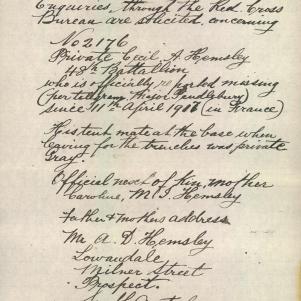 Enquiries, through the Red Cross
Bureau are solicited, concerning
No 2176
Private Cecil A. Hemsley
48th Battalion
who is officially reported missing
(per telegram Major Pendlebury)
since 11th April 1917 (in France)
His tent mate at the base when
leaving for the trenches was private
Gray.
Official next of kin, mother
Caroline, M. S. Hemsley
Father & mothers address
Mr A. D. Hemsley
Lowandale
Milner Street
Prospect.